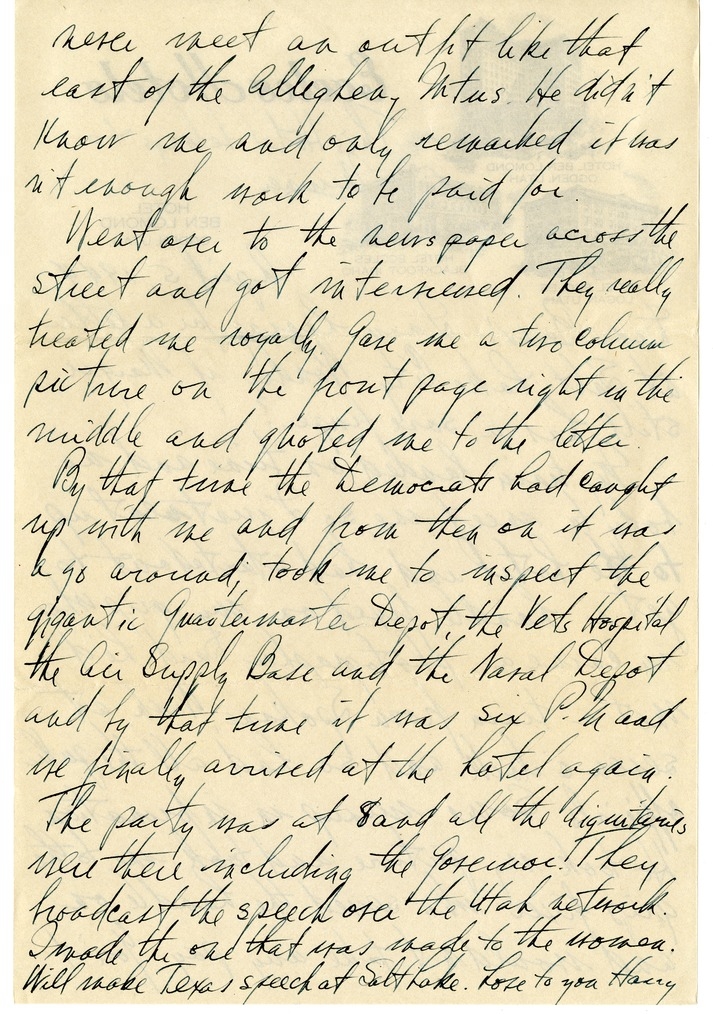 never meet an outfit like that
east of the Allegheny Mtns. He didn't
know me and only remarked it was
n't enough work to be paid for.
Went over to the newspaper across the
street and got interviewed. They really
treated me royally Gave me a two column
picture on the front page right in the
middle and quoted me to the letter.
By that time the Democrats had caught
up with me and from then on it was
a go around, took me to inspect the
gigantic Quartermaster Depot, the Vets Hospital
the Air Supply Base and the Naval Depot
and by that time it was six P.M and
we finally arrived at the hotel again.
The party was at 8 and all the dignitaries
were there including the Governor. They
broadcast the speech over the Utah network.
I made the one that was made to the women.
Will make Texas speech at Salt Lake. Love to you Harry